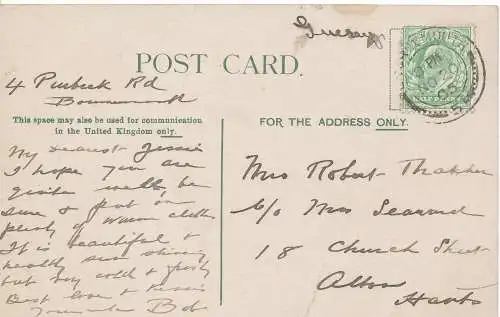 Tuesday
POST CARD.
4 Purbeck Rd
Bournemouth
This space may also be used for communication
in the United Kingdom only.
FOR THE ADDRESS ONLY.
My dearest Jessie
I hope you are
quite well, be
sure & put on
plenty of warm clothes
It is beautiful &
healthy sun shining
but very cold & frosty
Best love & kisses
Bob
Mrs Robert Thatcher
c/o Mrs Seaward
18 Church Street
Alton
Hants